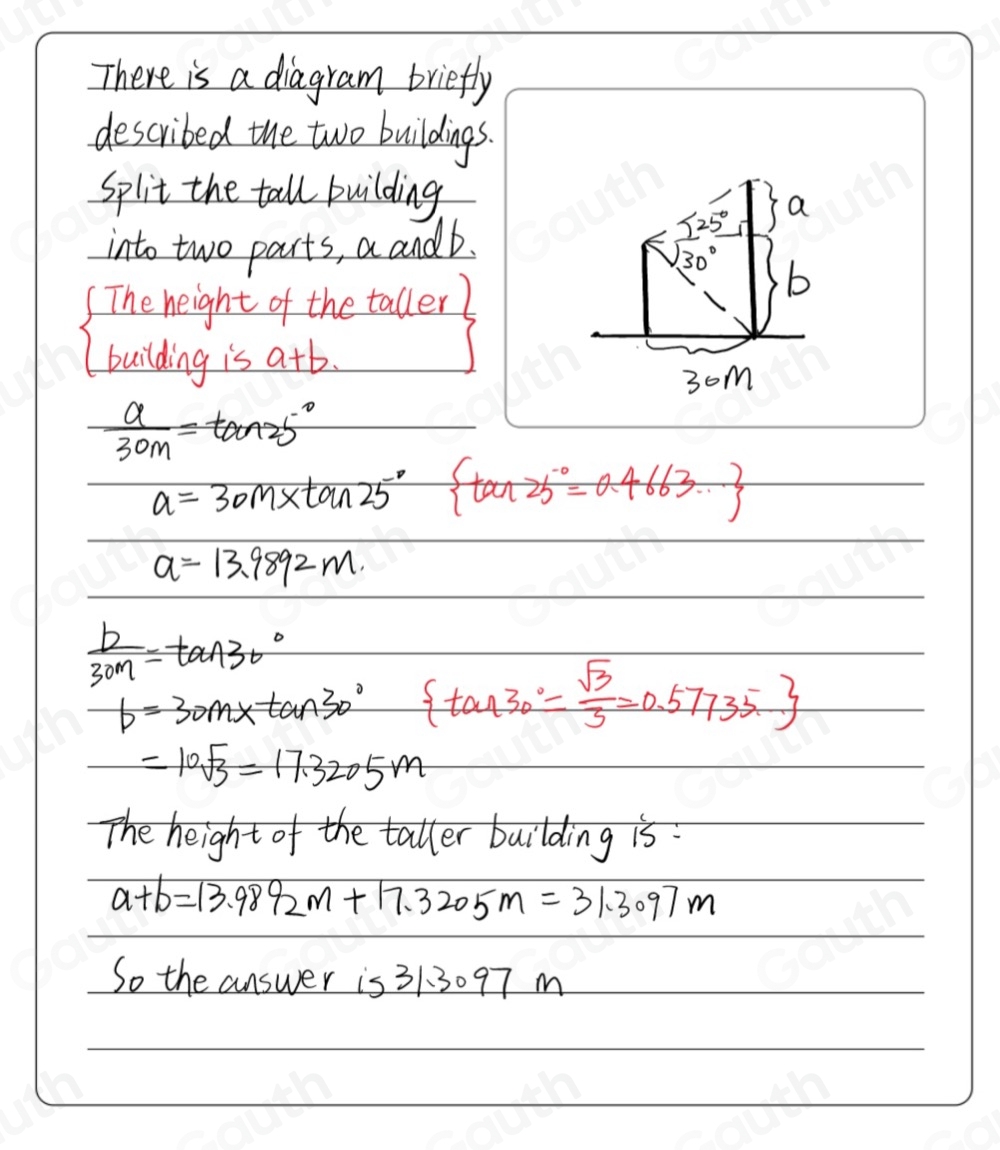 There is a diagram briefly
described the two buildings.
Split the tall building
into two parts, a and b.
{The height of the taller
building is a+b.}
a/30m = tan25°
a = 30m×tan25° {tan25° = 0.4663...}
a = 13.9892m.
b/30m = tan30°
b = 30m×tan30° {tan30° = √3/3 = 0.57735...}
= 10√3 = 17.3205m
The height of the taller building is:
a+b=13.9892m + 17.3205m = 31.3097m
So the answer is 31.3097 m
a
25°
30°
b
30M
Gauth